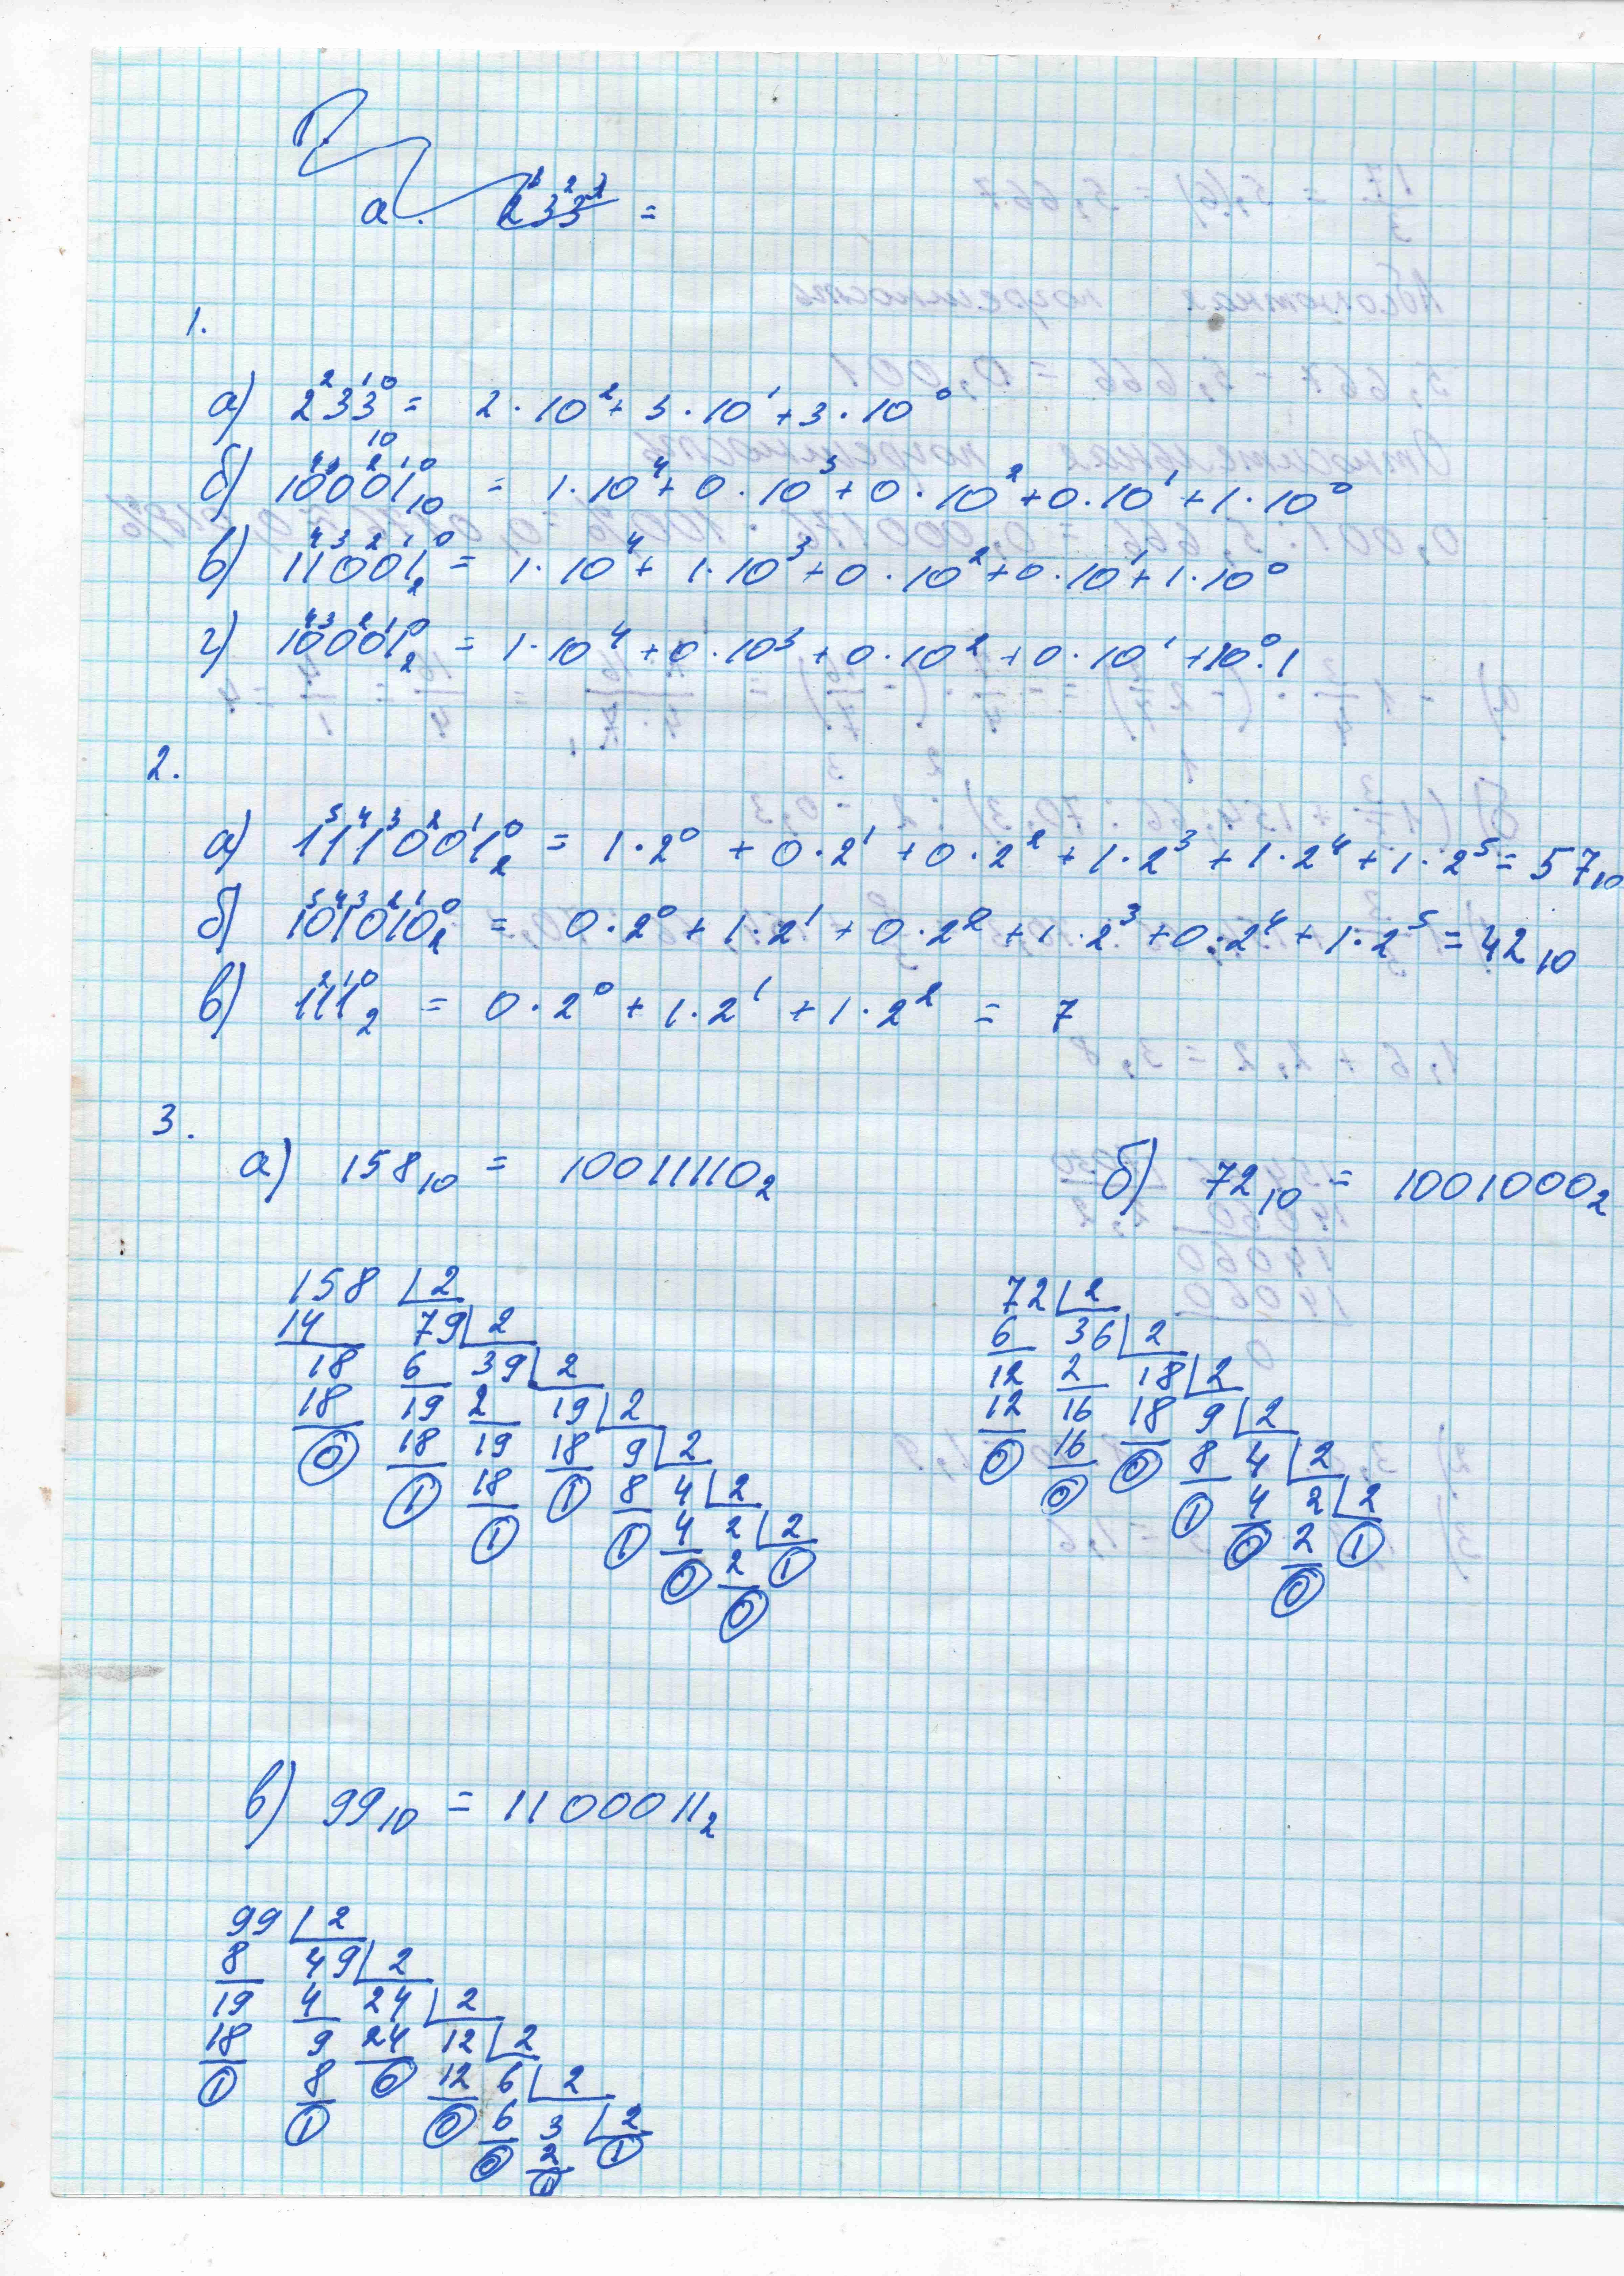 а. 233 =
1.
а) 2²3¹3⁰ = 2 · 10² + 3 · 10¹ + 3 · 10⁰
10
б) 1⁴0³0²0¹1⁰₁₀ = 1 · 10⁴ + 0 · 10³ + 0 · 10² + 0 · 10¹ + 1 · 10⁰
в) 1⁴1³0²0¹1⁰₂ = 1 · 10⁴ + 1 · 10³ + 0 · 10² + 0 · 10¹ + 1 · 10⁰
г) 1⁴0³0²0¹1⁰₂ = 1 · 10⁴ + 0 · 10³ + 0 · 10² + 0 · 10¹ + 10⁰ · 1
2.
а) 1⁵1⁴1³0²0¹1⁰₂ = 1 · 2⁰ + 0 · 2¹ + 0 · 2² + 1 · 2³ + 1 · 2⁴ + 1 · 2⁵ = 57₁₀
б) 1⁵0⁴1³0²1¹0⁰₂ = 0 · 2⁰ + 1 · 2¹ + 0 · 2² + 1 · 2³ + 0 · 2⁴ + 1 · 2⁵ = 42₁₀
в) 1²1¹1⁰₂ = 0 · 2⁰ + 1 · 2¹ + 1 · 2² = 7
3.
а) 158₁₀ = 10011110₂ б) 72₁₀ = 1001000₂
158 2
14 79 2
18 6 39 2
18 19 2 19 2
0 18 19 18 9 2
1 18 1 8 4 2
1 1 4 2 2
0 2 1
0
72 2
6 36 2
12 2 18 2
12 16 18 9 2
0 16 0 8 4 2
0 1 4 2 2
0 2 1
0
в) 99₁₀ = 1100011₂
99 2
8 49 2
19 4 24 2
18 9 24 12 2
1 8 0 12 6 2
1 0 6 3 2
0 2 1
1